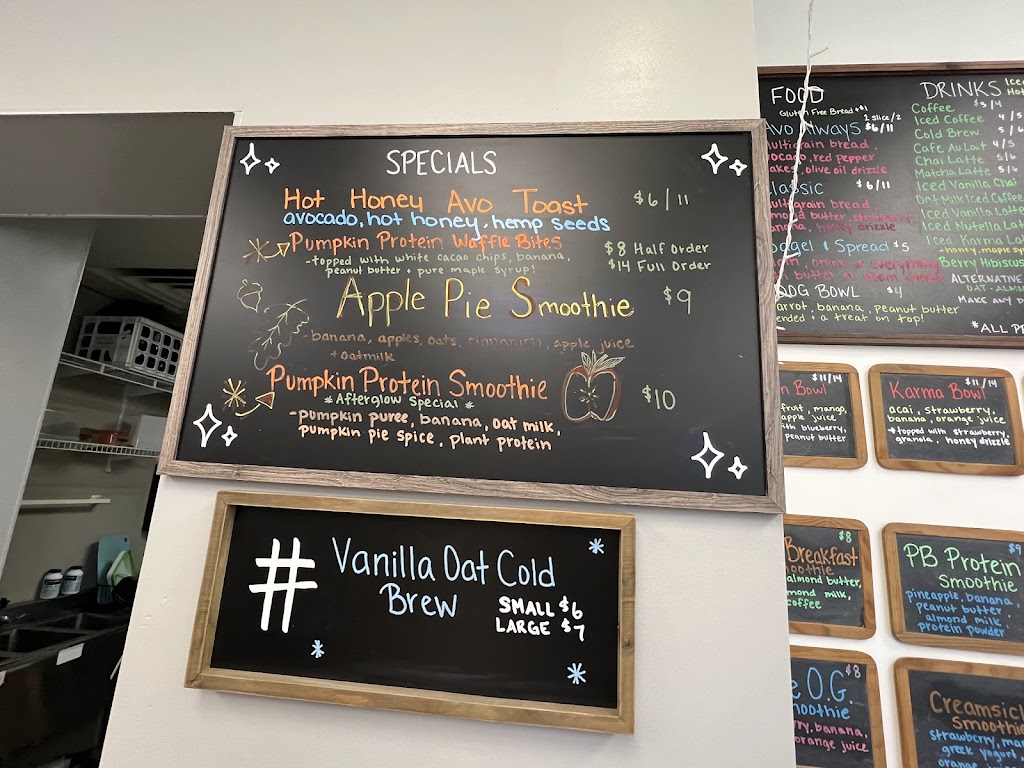 SPECIALS
Hot Honey Avo Toast $6/11
avocado, hot honey, hemp seeds
Pumpkin Protein Waffle Bites $8 Half Order
-topped with white cacao chips, banana, $14 Full Order
peanut butter + pure maple syrup!
Apple Pie Smoothie $9
-banana, apples, oats, cinnamon, apple juice
+ oatmilk
Pumpkin Protein Smoothie $10
* Afterglow Special *
-pumpkin puree, banana, oat milk,
pumpkin pie spice, plant protein
# Vanilla Oat Cold
Brew
SMALL $6
LARGE $7
FOOD
Gluten Free Bread +$1
1 slice/2
Avo Always $6/11
multigrain bread,
avocado, red pepper
flakes, olive oil drizzle
Classic $6/11
multigrain bread
almond butter, strawberry,
banana, honey drizzle
Bagel & Spread $5
DOG BOWL $4
carrot, banana, peanut butter
blended + a treat on top!
DRINKS Iced
Hot
Coffee $3/4
Iced Coffee 4/5
Cold Brew 5/6
Cafe Au Lait 4/5
Chai Latte 5/6
Matcha Latte 5/6
Iced Vanilla Chai
Oat Milk Iced Coffee
Iced Vanilla Latte
Iced Nutella Latte
Iced Karma Lat
-honey, maple sy
Berry Hibiscus
ALTERNATIVE
OAT - ALMO
MAKE ANY D
*ALL PR
n Bowl $11/14
fruit, mango,
apple juice
with blueberry,
peanut butter
Karma Bowl $11/14
acai, strawberry,
banana, orange juice
*topped with strawberry,
granola, honey drizzle
Breakfast $8
Smoothie
almond butter,
almond milk,
coffee
PB Protein $9
Smoothie
pineapple, banana,
peanut butter,
almond milk,
protein powder
e O.G. $8
Smoothie
rry, banana,
orange juice
Creamsicl
Smoothie
strawberry, man
greek yogurt,
orange juice